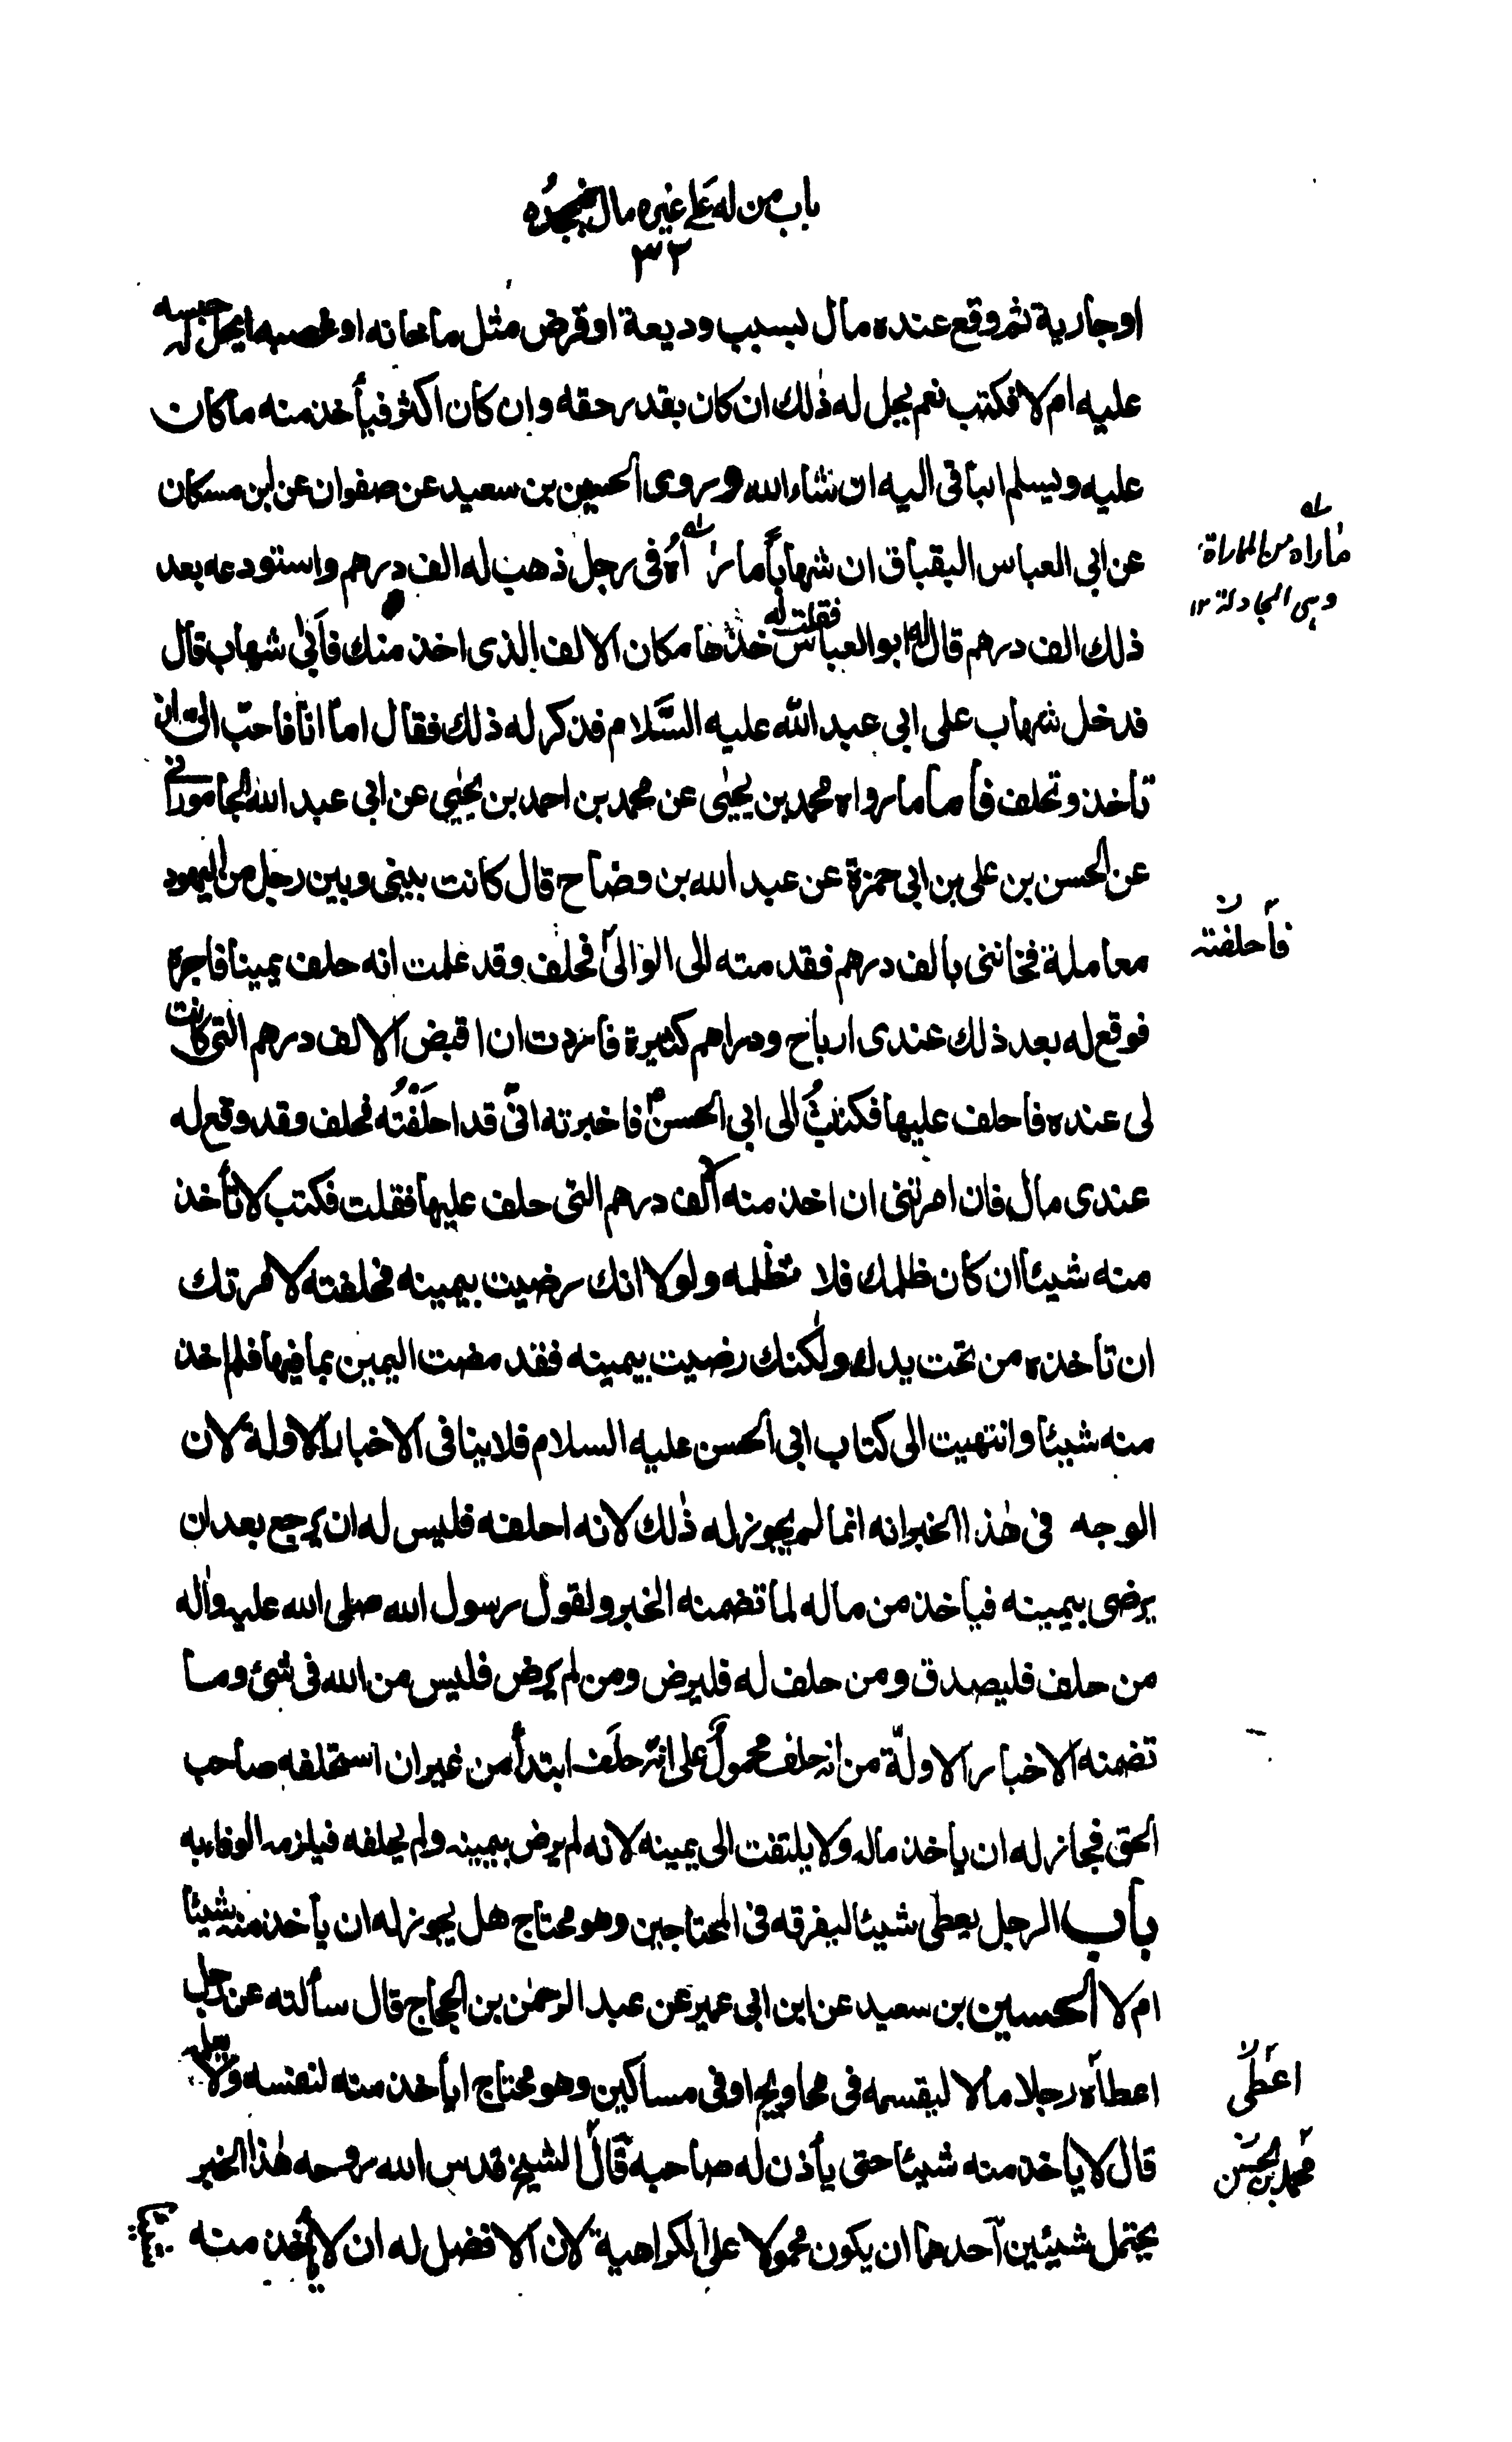 باب من له على غيره مال فيجحده
٣٢
او جارية ثم وقع عنده مال بسبب وديعة او قرض مثل ما خانه او غصبه ايحل له حبسه
عليه ام لا فكتب نعم يحل له ذلك ان كان بقدر حقه وان كان اكثر فيأخذ منه ما كان
عليه ويسلم الباقى اليه ان شاء الله وروى الحسين بن سعيد عن صفوان عن ابن مسكان
عن ابى العباس البقباق ان شهابا ماراه فى رجل ذهب له الف درهم واستودعه بعد
ذلك الف درهم قال له ابو العباس فقلت له خذها مكان الالف الذى اخذ منك فأبى شهاب قال
فدخل شهاب على ابى عبد الله عليه السلام فذكر له ذلك فقال اما انا فاحب الى ان
تأخذ وتحلف فأما ما رواه محمد بن يحيى عن محمد بن احمد بن يحيى عن ابى عبد الله الجامورانى
عن الحسن بن على بن ابى حمزة عن عبد الله بن وضاح قال كانت بينى وبين رجل من اليهود
معاملة فخاننى بالف درهم فقدمته الى الوالى فحلف وقد علمت انه حلف يمينا فاجرة
فوقع له بعد ذلك عندى ارباح ودراهم كثيرة فاردت ان اقبض الالف درهم التى كانت
لى عنده فاحلف عليها فكتبت الى ابى الحسن ع فاخبرته انى قد احلفته فحلف وقد وقع له
عندى مال فان امرتنى ان اخذ منه الالف درهم التى حلف عليها فقلت فكتب لا تأخذ
منه شيئا ان كان ظلمك فلا تظلمه ولولا انك رضيت بيمينه فحلفته لامرتك
ان تأخذه من تحت يدك ولكنك رضيت بيمينه فقد مضت اليمين بما فيها فلم اخذ
منه شيئا وانتهيت الى كتاب ابى الحسن عليه السلام فلا ينافى الاخبار الاولة لان
الوجه فى هذا الخبر انه انما لم يجوز له ذلك لانه احلفه فليس له ان يرجع بعد ان
يرضى بيمينه فيأخذ من ماله لما تضمنه الخبر ولقول رسول الله صلى الله عليه واله
من حلف فليصدق ومن حلف له فليرض ومن لم يرض فليس من الله فى شئ وما
تضمنه الاخبار الاولة من انه حلف محمول على انه حلف ابتدأ من غير ان استحلفه صاحب
الحق فجاز له ان يأخذ ماله ولا يلتفت الى يمينه لانه لم يرض بيمينه ولم يحلفه فيلزمه الوفاء به
باب الرجل يعطى شيئا ليفرقه فى المحتاجين وهو محتاج هل يجوز له ان يأخذ منه شيئا
ام لا الحسين بن سعيد عن ابن ابى عمير عن عبد الرحمن بن الحجاج قال سألته عن رجل
اعطاه رجل مالا ليقسمه فى محاويج او فى مساكين وهو محتاج ايأخذ منه لنفسه ولا يعلمه
قال لا يأخذ منه شيئا حتى يأذن له صاحبه قال الشيخ قدس الله روحه هذا الخبر
يحتمل شيئين احدهما ان يكون محمولا على الكراهية لان الافضل له ان لا يأخذ منه
ماراه من المماراة
وهى المجادلة ١٢
فأحلفته
اعطى
محمد بن الحسن